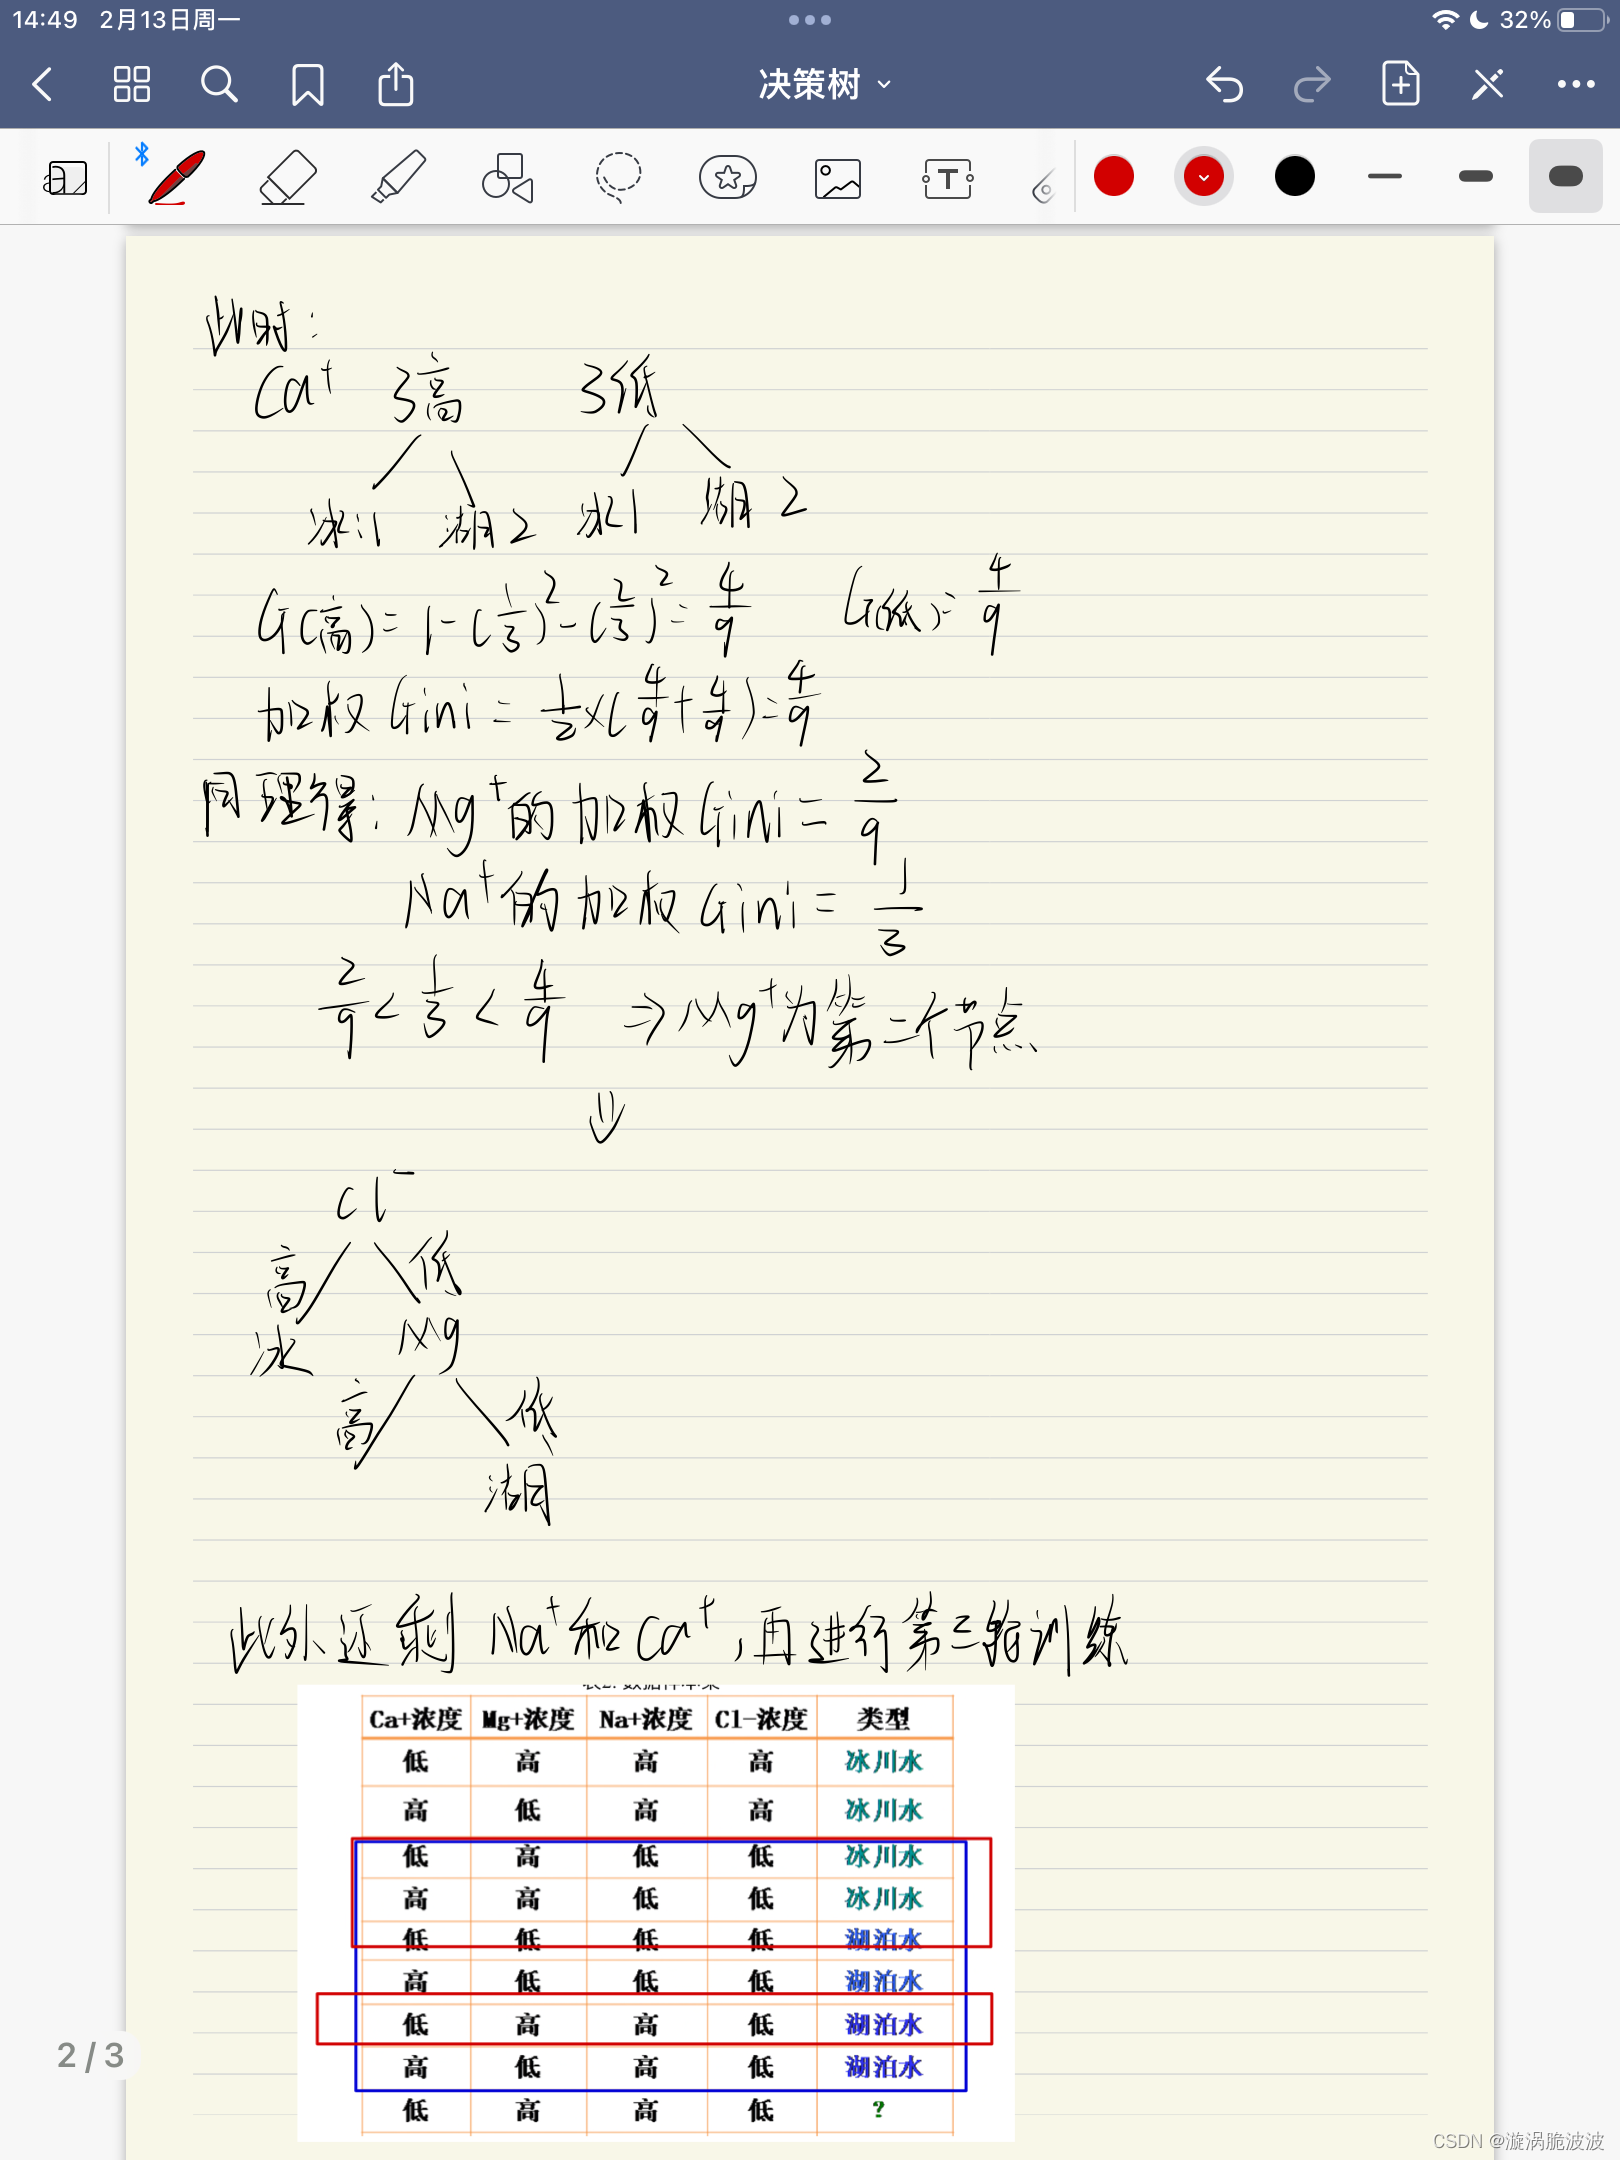 14:49 2月13日周一
32%
决策树
此时：
Ca⁺ 3高 3低
冰:1 湖2 冰1 湖2
G(高)=1-(1/3)²-(2/3)²=4/9 G(低)=4/9
加权Gini=1/2×(4/9+4/9)=4/9
同理得：Mg⁺的加权Gini=2/9
Na⁺的加权Gini=1/3
2/9<1/3<4/9 ⇒Mg⁺为第二个节点
⇓
Cl⁻
高 低
冰 Mg
高 低
湖
此外还剩Na⁺和Ca⁺,再进行第三轮训练
Ca+浓度 Mg+浓度 Na+浓度 Cl-浓度 类型
低 高 高 高 冰川水
高 低 高 高 冰川水
低 高 低 低 冰川水
高 高 低 低 冰川水
低 低 低 低 湖泊水
高 低 低 低 湖泊水
低 高 高 低 湖泊水
高 低 高 低 湖泊水
低 高 高 低 ?
2/3
CSDN @漩涡脆波波